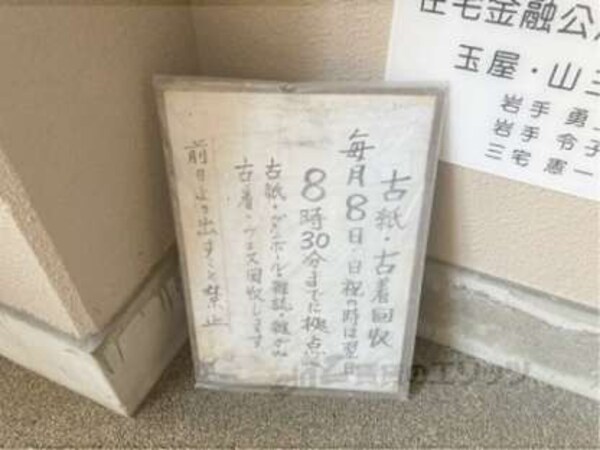 古紙・古着回収
毎月8日・日祝の時は翌日
8時30分までに拠点に
古紙・ダンボール・雑誌・雑がみ
古着・ウエス回収します
前日より出すこと禁止
住宅金融公
玉屋・山三
岩手 勇
岩手 令子
三宅 憲一
のエリッツ